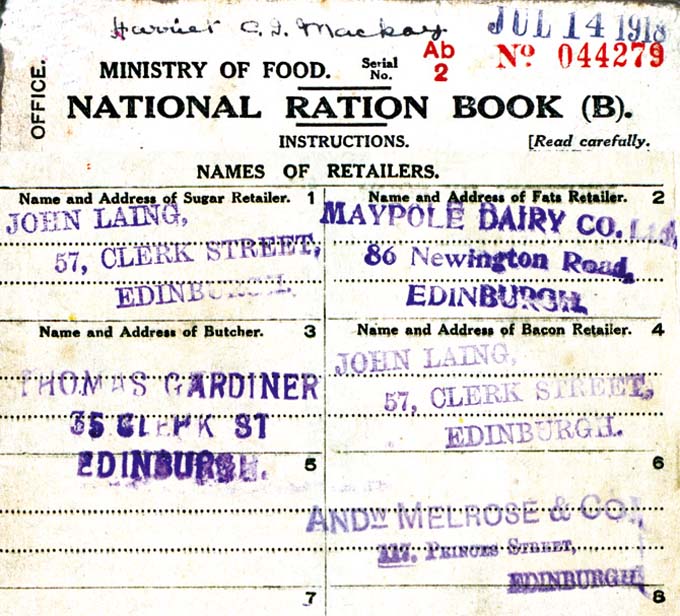 Harriet C. I. Mackay
JUL 14 1918
OFFICE.
MINISTRY OF FOOD.
Serial No.
Ab 2
No 044279
NATIONAL RATION BOOK (B).
INSTRUCTIONS.
[Read carefully.
NAMES OF RETAILERS.
Name and Address of Sugar Retailer. 1
JOHN LAING,
57, CLERK STREET,
EDINBURGH.
Name and Address of Fats Retailer. 2
MAYPOLE DAIRY CO. Ltd,
86 Newington Road,
EDINBURGH.
Name and Address of Butcher. 3
THOMAS GARDINER
35 CLERK ST
EDINBURGH.
Name and Address of Bacon Retailer. 4
JOHN LAING,
57, CLERK STREET,
EDINBURGH.
5
6
ANDW MELROSE & CO.,
117, PRINCES STREET,
EDINBURGH
7
8